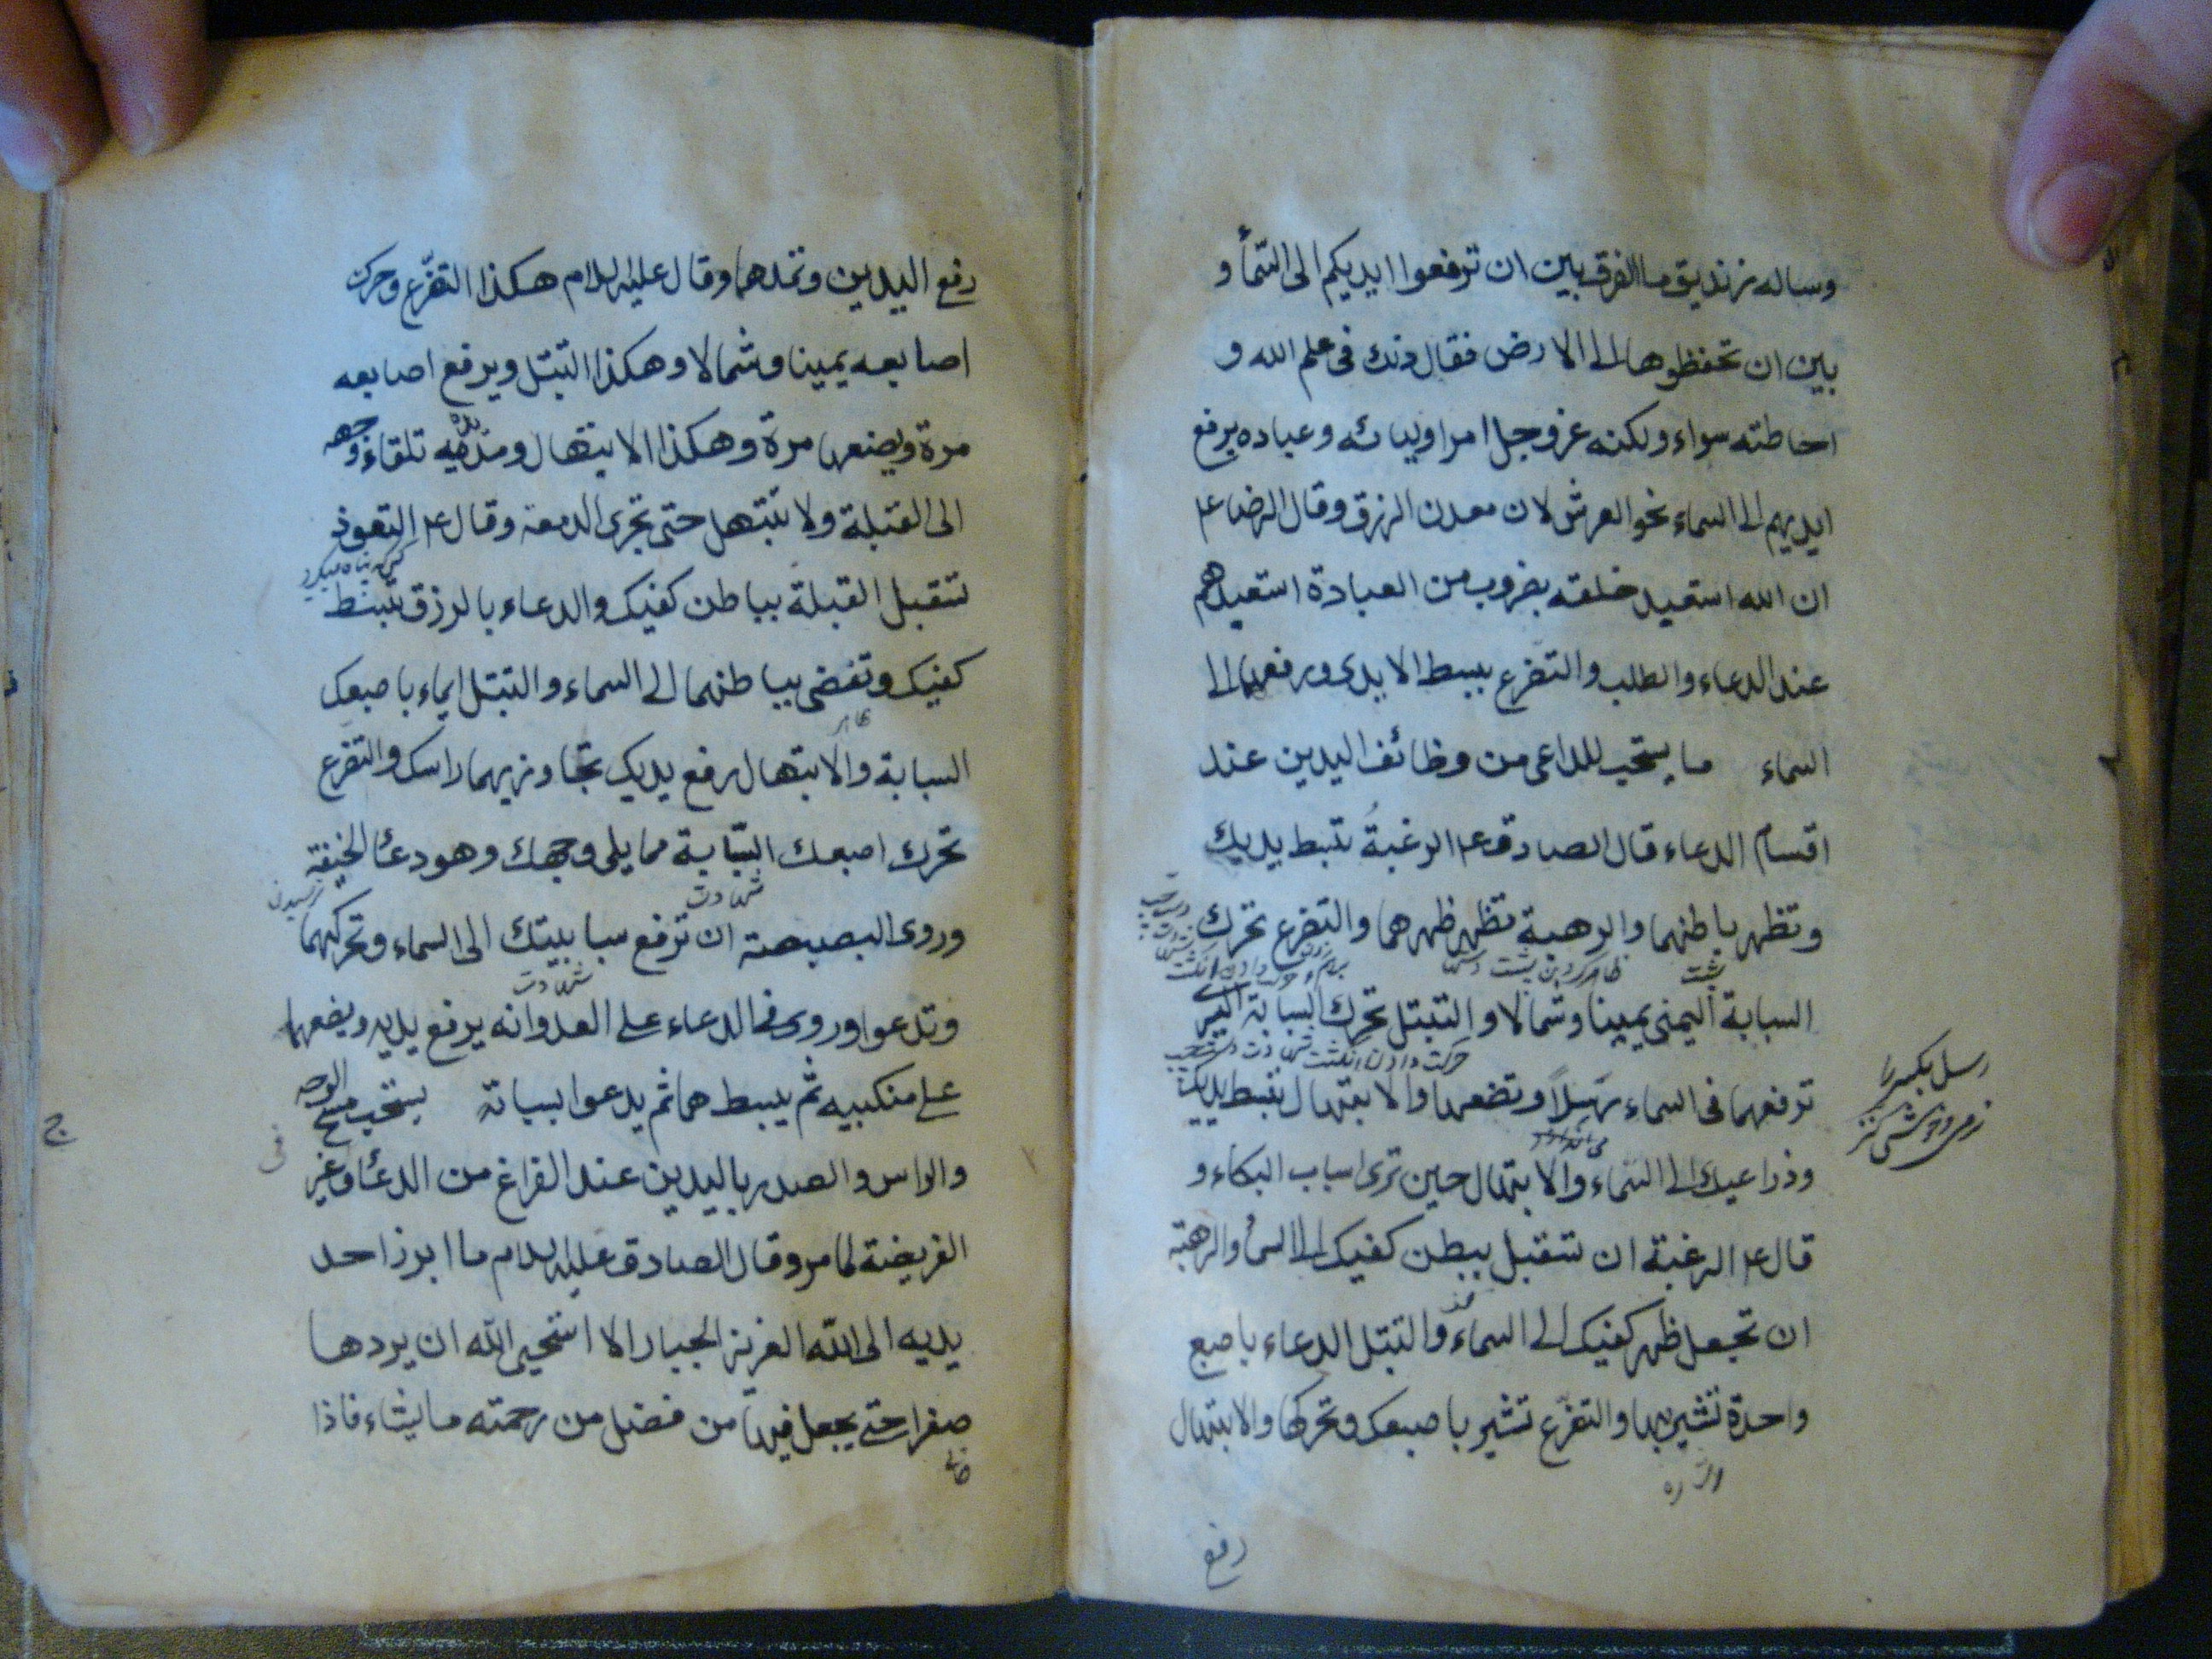 وساله زنديق ما الفرق بين ان ترفعوا ايديكم الى السّمأ و
بين ان تحفظوها الى الارض فقال ذلك فى علم الله و
احاطته سواء ولكنه عز وجل امر اوليائه وعباده برفع
ايديهم الى السماء نحو العرش لان معدن الرزق وقال الرضا ع
ان الله استعبد خلقه بضروب من العبادة استعبدهم
عند الدعاء والطلب والتضرع ببسط الايدى ورفعها الى
السماء ما يستحب للداعى من وظائف اليدين عند
اقسام الدعاء قال الصادق ع الرغبة تبسط يديك
وتظهر باطنهما والرهبة تظهر ظهرهما والتضرع تحرك
پشت ظاهر كردن پشت دستها
السبابة اليمنى يمينا وشمالا والتبتل تحرك السبابة اليسرى
حركت دادن انگشت شهادت دست چپ
ترفعهما فى السماء رسلا وتضعهما والابتهال تبسط يديك
رسل بكسر را
وذراعيك الى السماء والابتهال حين ترى اسباب البكاء و
قال ع الرغبة ان تستقبل ببطن كفيك الى السمأ والرهبة
ان تجعل ظهر كفيك الى السماء والتبتل الدعاء باصبع
واحدة تشير بها والتضرع تشير باصبعك وتحركها والابتهال
اشاره
رفع
رفع اليدين وتمدهما وقال عليه السلام هكذا التضرّع وحرك
اصابعه يمينا وشمالا وهكذا التبتل ويرفع اصابعه
مرة ويضعها مرة وهكذا الابتهال ومد يديه تلقاء وجهه
الى القبلة ولا تبتهل حتى تجرى الدمعة وقال ع التعوذ
تستقبل القبلة بباطن كفيك والدعاء بالرزق تبسط
كفيك وتفضى بباطنهما الى السماء والتبتل ايماء باصبعك
ظاهر
السبابة والابتهال رفع يديك تجاوز بهما راسك والتضرع
تحرك اصبعك السّبّابة مما يلى وجهك وهو دعأ الخيفة
شهادت ترسيدن
وروى البصبصة ان ترفع سبابيتك الى السماء وتحركهما
شهادت
وتدعوا وروى فى الدعاء على العدو انه يرفع يديه ويضعهما
على منكبيه ثم يبسطهما ثم يدعوا بسبابة يستحب مسح الوجه
والراس والصدر باليدين عند الفراغ من الدعأ فى غير
الفريضة لما مر وقال الصادق عليه السلام ما ابرز احد
يديه الى الله العزيز الجبار الا استحيى الله ان يردها
صفرا حتى يجعل فيها من فضل من رحمته ما يشاء فاذا
خالى